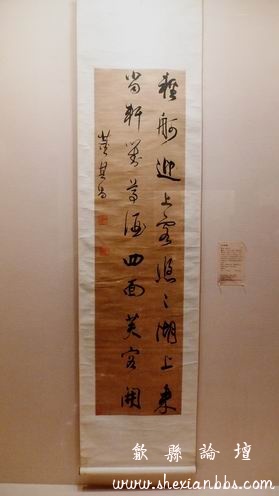 輕舸迎上客悠〻湖上來
當軒對尊酒四面芙蓉開
董其昌
歙縣論壇
www.shexianbbs.com